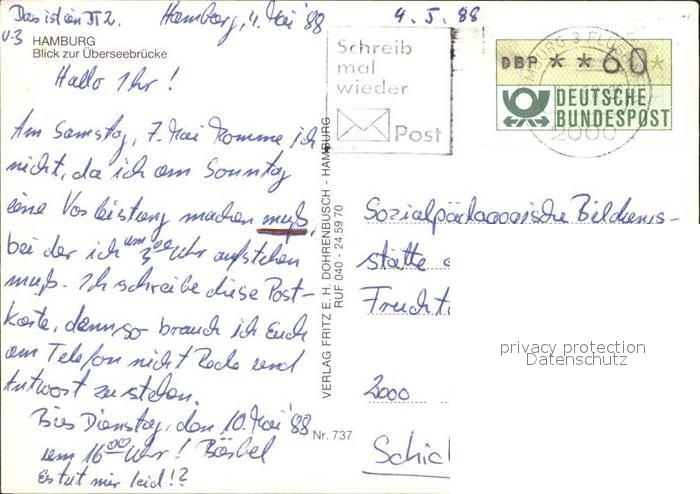 Das ist ein JT 2. Hamburg, 4. Mai '88
4. 5. 88
v. 3
HAMBURG
Blick zur Überseebrücke
Hallo Ihr!
Am Samstag, 7. Mai komme ich
nicht, da ich am Sonntag
eine Vorleistung machen muß,
bei der ich um 3 00 Uhr aufstehen
muß. Ich schreibe diese Post-
karte, denn so brauch ich Euch
am Telefon nicht Rede und
Antwort zu stehen.
Bis Dienstag, den 10. Mai '88
um 16 00 Uhr! Bärbel
Es tut mir leid!?
VERLAG FRITZ E. H. DOHRENBUSCH - HAMBURG
RUF 040 - 24 59 70
Nr. 737
Schreib
mal
wieder
Post
DBP ** 60*
DEUTSCHE
BUNDESPOST
2000
Sozialpädagogische Bildungs-
stätte
Frucht
2000
Schic
privacy protection
Datenschutz